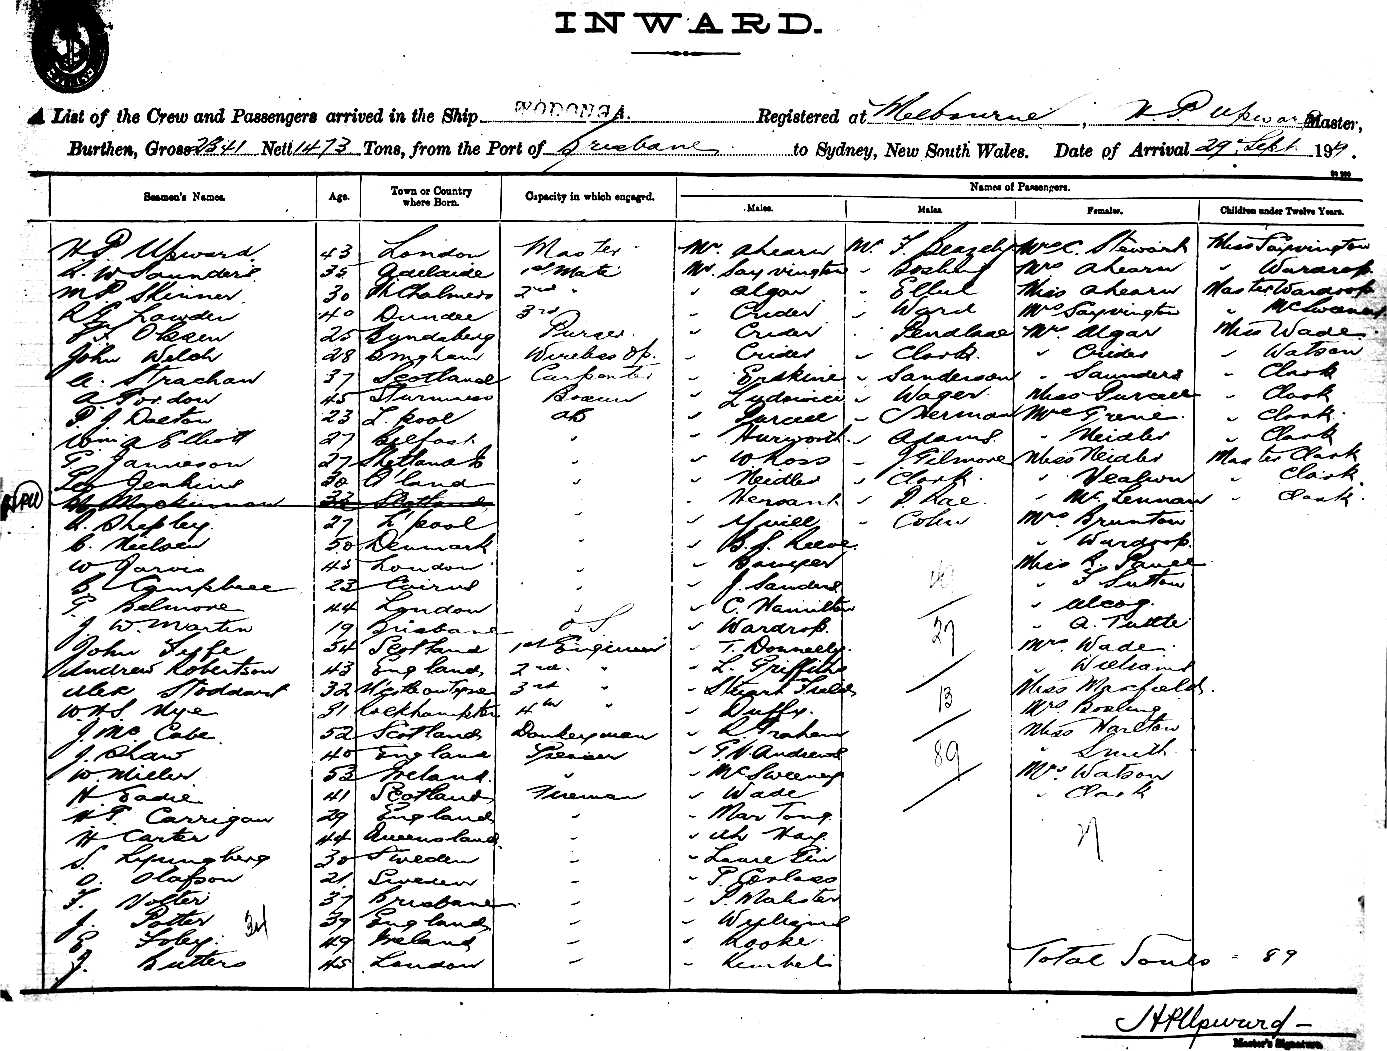 INWARD.
A List of the Crew and Passengers arrived in the Ship WODONGA. Registered at Melbourne, H P Upward Master,
Burthen, Gross 2341 Nett 1473 Tons, from the Port of Brisbane to Sydney, New South Wales. Date of Arrival 29 Sept 191
Seamen's Names. Age. Town or Country where Born. Capacity in which engaged. Names of Passengers.
Males. Males. Females. Children under Twelve Years.
H P Upward 43 London Master Mr Ahearn Mr F. Beazely Mrs C. Stewart Miss Sayvington
L. W Saunders 35 Adelaide 1st Mate Mr Sayvington " Bosling Mrs Ahearn " Wardrop
M P Skinner 30 Pt Chalmers 2nd " " Algar " Miss Ahearn Master Wardrop
40 Dundee 3rd " Crider " Ward Mrs Sayvington " McSweeney
Olssen 25 Purser " Crider " Mrs Algar Miss Wade
John Welch 28 Bingham Wireless Op. " Crider " Clark " Crider " Watson
A. Strachan 37 Scotland Carpenter " Erskine " Sanderson " Saunders " Clark
A Gordon 45 Bosun " " Wager Miss Purcell " Clark
P. J. Dalton 23 L'pool AB " Purcell " Sherman Mrs Grene " Clark
Elliott 27 Belfast " " Hurworth " Adams " Neidler " Clark
G. Jamieson 27 Shetland Is " " W Ross " J Gilmore Miss Neidler Master Clark
Jenkins 30 " " Neidler " Clark " " Clark
Mackinnon 33 Scotland " " " J Rae " McLennan " Clark
A. Shepley 27 L'pool " " " Cohn Mrs Brunton
C. Neilsen 50 Denmark " " B. S. Reeve " Wardrop
W Jarvis 45 London " " Miss R.
B Campbell 23 Cairns " " J. Sanders 49 " F Sutton
G. Belmore 44 London " " C. Hamilton " Alcog
J W. Martin 19 Brisbane O S " Wardrop 27 " A. Tuttle
John Fyffe 54 Scotland 1st Engineer " T. Donnelly Mrs Wade
Andrew Robertson 43 England 2nd " " L. Griffiths " Williams
Alex Stoddart 32 3rd " " Stuart Field 13 Miss
W. H. S. Nye 31 Rockhampton 4th " " Duffy Mrs Bosling
J. McCabe 52 Scotland Donkeyman " Graham Miss Harlton
J. Shaw 40 England Greaser " G. H Andrews 89 " Smith
W. Miller 53 Ireland " " McSweeney Mrs Watson
H. Eadie 41 Scotland Fireman " Wade " Clark
H. P. Carrigan 29 England " " Mar Tong 27
H Carter 44 Queensland " " Ah Hay
S. Lyungberg 30 Sweden "
O. Olafson 21 Sweden " "
F. Nolter 37 Brisbane " "
J. Potter 34 39 England " "
E Foley 49 Ireland " " Rooke
J. Butters 45 London " " Total Souls = 89
H P Upward
Master's Signature.